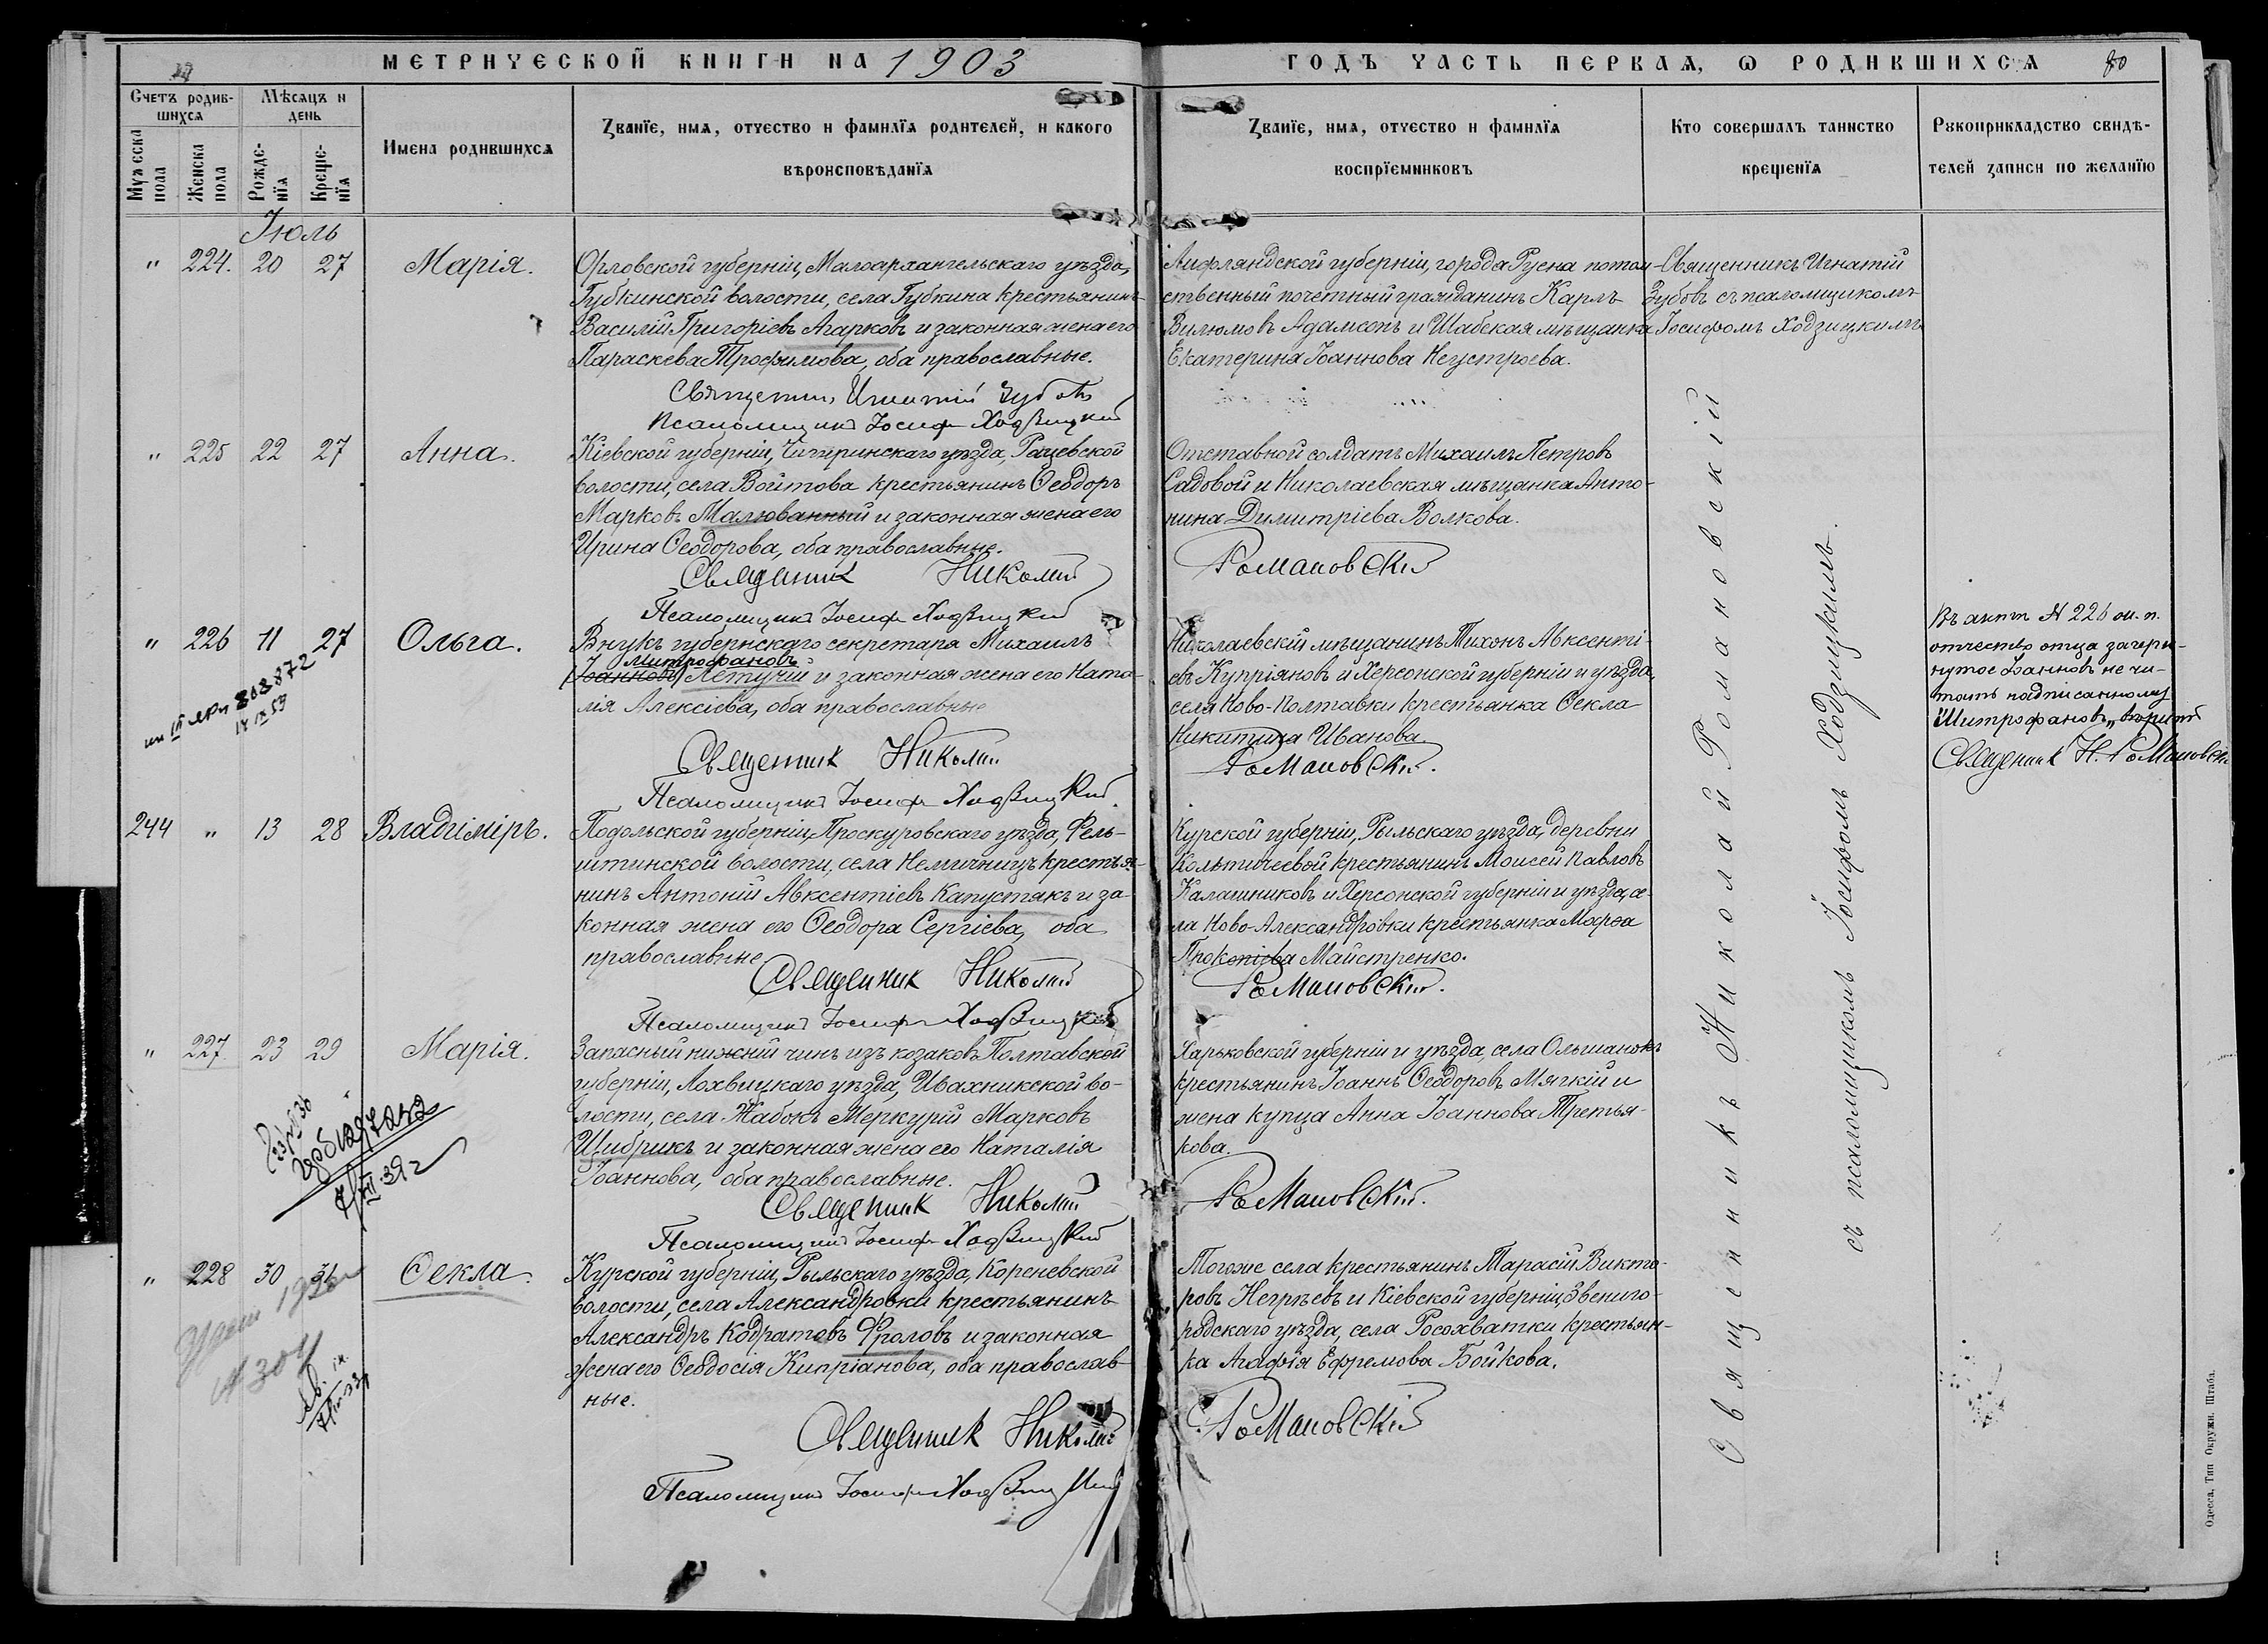 МЕТРИЧЕСКОЙ КНИГИ НА 1903
ГОДЪ ЧАСТЬ ПЕРВАЯ, Ѡ РОДИВШИХСЯ 80
Счетъ родив-
шихся
Мѣсяцъ и
день
Мужеска
пола
Женска
пола
Рожде-
нїя
Креще-
нїя
Имена родившихся
Званїе, имя, отчество и фамилїя родителей, и какого
вѣроисповѣданїя
Званїе, имя, отчество и фамилїя
воспрїемниковъ
Кто совершалъ таинство
крещенїя
Рꙋкоприкладство свидѣ-
телей записи по желанїю
Іюль
" 224. 20 27 Марія.
Орловской губерніи, Малоархангельскаго уѣзда,
Губкинской волости, села Губкина крестьянинъ
Василій Григоріевъ Агарковъ и законная жена его
Параскева Трофимова, оба православные.
Священникъ Игнатій Зубовъ
Псаломщикъ Іосифъ Ходзицкій
Лифляндской губерніи, города Руена потом-
ственный почетный гражданинъ Карлъ
Вилюмовъ Адамсонъ и Шабская мѣщанка
Екатерина Іоаннова Неустроева.
Священникъ Игнатій
Зубовъ съ псаломщикомъ
Іосифомъ Ходзицкимъ
" 225 22 27 Анна.
Кіевской губерніи, Чигиринскаго уѣзда, Рацевской
волости, села Войтова крестьянинъ Ѳеодоръ
Марковъ Малюванный и законная жена его
Ирина Ѳеодорова, оба православные.
Священникъ Николай
Псаломщикъ Іосифъ Ходзицкій
Отставной солдатъ Михаилъ Петровъ
Садовой и Николаевская мѣщанка Анто-
нина Димитріева Волкова.
Романовскій
" 226 11 27 Ольга.
808872
14 IX 53
Внукъ губернскаго секретаря Михаилъ
Митрофановъ
(Іоанновъ) Летучій и законная жена его Ната-
лія Алексіева, оба православные
Священникъ Николай
Псаломщикъ Іосифъ Ходзицкій
Николаевскій мѣщанинъ Тихонъ Авксенті-
евъ Купріяновъ и Херсонской губерніи и уѣзда,
села Ново-Полтавки крестьянка Ѳекла
Никитина Иванова.
Романовскій.
Въ актѣ № 226 ж. п.
отчество отца зачерк-
нутое Іоанновъ не чи-
тать надписанному
"Митрофановъ" вѣрить
Священникъ Н. Романовскій
244 " 13 28 Владиміръ.
Подольской губерніи, Проскуровскаго уѣзда, Фель-
штинской волости, села Немичинцъ крестья-
нинъ Антоній Авксентіевъ Капустякъ и за-
конная жена его Ѳеодора Сергіева, оба
православные
Священникъ Николай
Псаломщикъ Іосифъ Ходзицкій
Курской губерніи, Рыльскаго уѣзда, деревни
крестьянинъ Моисей Павловъ
Калашниковъ и Херсонской губерніи и уѣзда, се-
ла Ново-Александровки крестьянка Марѳа
Прокопіева Майстренко.
Романовскій.
" 227. 23 29 Марія.
Запасный нижній чинъ изъ козаковъ Полтавской
губерніи, Лохвицкаго уѣзда, Ивахникской во-
лости, села Жабокъ Меркурій Марковъ
Щибрикъ и законная жена его Наталія
Іоаннова, оба православные.
Священникъ Николай
Псаломщикъ Іосифъ Ходзицкій
Харьковской губерніи и уѣзда, села Ольшанокъ
крестьянинъ Іоаннъ Ѳеодоровъ Мягкій и
жена купца Анна Іоаннова Третья-
кова.
Романовскій.
" 228 30 31 Ѳекла.
№ 304
Курской губерніи, Рыльскаго уѣзда, Кореневской
волости, села Александровки крестьянинъ
Александръ Кодратовъ Фроловъ и законная
жена его Ѳеодосія Кипріанова, оба православ-
ные.
Священникъ Николай
Псаломщикъ Іосифъ Ходзицкій
Тогоже села крестьянинъ Тарасій Викто-
ровъ Негрѣевъ и Кіевской губерніи, Звениго-
родскаго уѣзда, села Росохватки крестьян-
ка Агафія Ефремова Бойкова.
Романовскій
Священникъ Николай Романовскій
съ псаломщикомъ Іосифомъ Ходзицкимъ.
Одесса. Тип Окружн. Штаба.